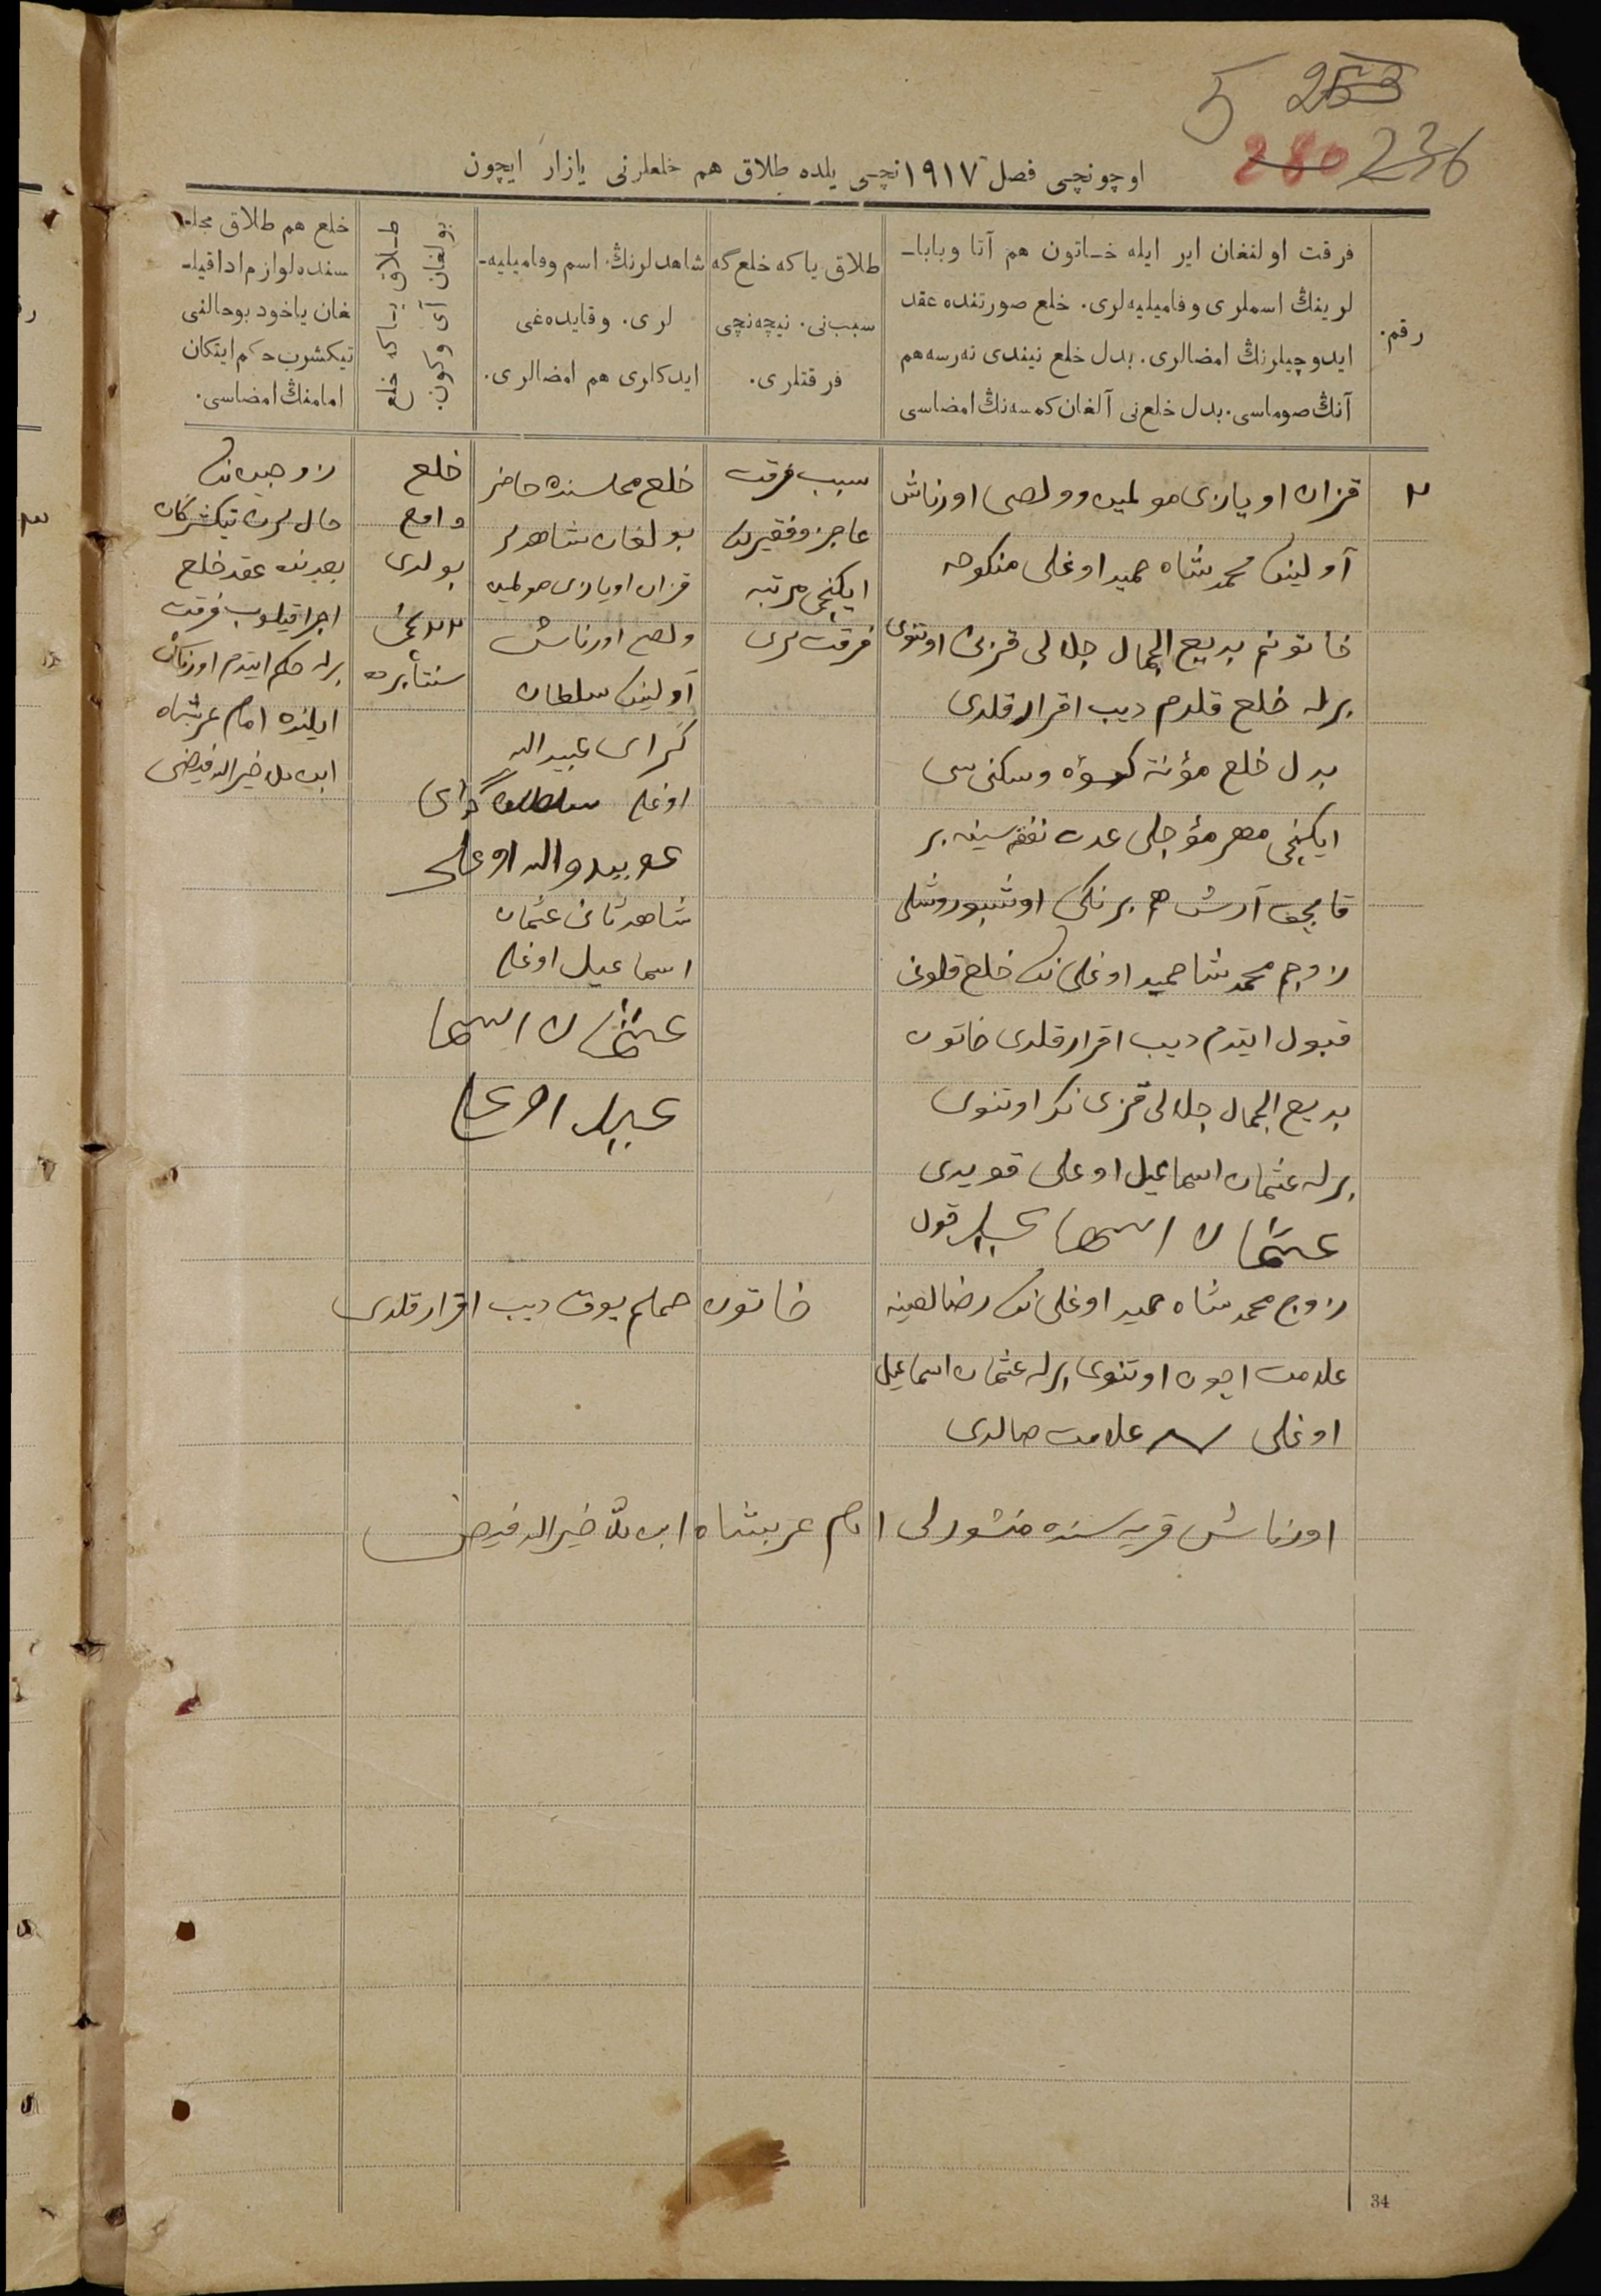 5 253
280 236
اوچونچی فصل ١٩١٧نچی یلده طلاق هم خلعلرنی یازار ایچون
رقم.
فرقت اولنغان ایر ایله خاتون هم آتا و بابا-
لرینڭ اسملری و فامیلیه‌لری. خلع صورتنده عقد
ایدوچیلرنڭ امضالری. بدل خلع نیندی نه‌رسه هم
آنڭ صوماسی. بدل خلع‌نی آلغان کمسه‌نڭ امضاسی
طلاق یا که خلع گه
سبب‌نی. نیچه‌نچی
فرقتلری.
شاهدلرنڭ اسم و فامیلیه-
لری. و قایده‌غی
ایدکلری هم امضالری.
طلاق یا که خلع
بولغان آی و کون.
خلع هم طلاق مجل-
سنده لوازم ادا قیل-
غان یاخود بو حالنی
تیکشرب حکم ایتکان
امامنڭ امضاسی.
٢
قزان اویازی مولمین وولصی اورناش
آولینڭ محمدشاه حمید اوغلی منکوحه
خاتونم بدیع الجمال جلالی قزی اوتنوی
برله خلع قلدم دیب اقرار قلدی
بدل خلع مؤنة کسوه و سکنی سی
ایکنچی مهر مؤجلی عدت نفقه سینه بر
آرش هم برنکی اوشبو روشلی
زوجم محمدشا حمید اوغلی نڭ خلع قلوی
قبول ایتدم دیب اقرار قلدی خاتون
بدیع الجمال جلالی قزی نڭ اوتنوی
برله عثمان اسماعیل اوغلی قویدی
عثمان اسما عیل قول
زوج محمدشاه حمید اوغلی نڭ رضالغینه
علامت ایچون اوتنوی برله عثمان اسماعیل
اوغلی علامت صالدی
سبب فرقت
عاجز و فقیرلک
ایکنچی مرتبه
فرقت لری
خلع مجلسنده حاضر
بولغان شاهدلر
قزان اویازی مولمین
ولصی اورناش
آولینڭ سلطان
گرای عبید الله
اوغلی سلطان گرای
عوبیدوالله اوغلی
شاهد ثانی عثمان
اسماعیل اوغلی
عثمان اسما
عییل اوغلی
خلع
واقع
بولدی
٢٢ نچی
سنتابرده
زوجین نڭ
حال لرن تیکشرکان
بعدنده عقد خلع
اجرا قیلوب فرقت
برله حکم ایتدم اورناش
ایلنده امام عربشاه
ابن ملا خیر الله فیضی
خاتون حملم یوق دیب اقرار قلدی
اورناش قریه سنده منشورلی امام عربشاه ابن ملا خیر الله فیضی
34